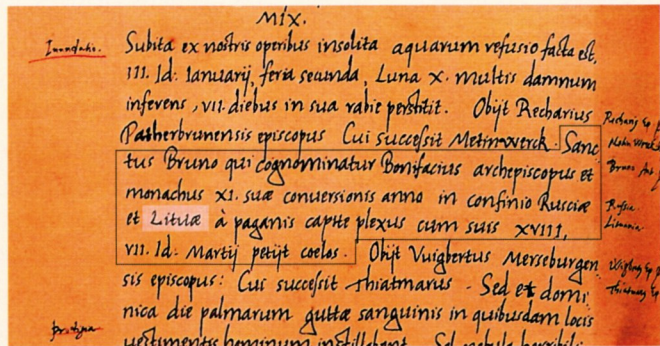 MIX.
Inundatio.
Subita ex nostris operibus insolita aquarum refusio facta est,
III. Id: Ianuarij, feria secunda, Luna X. multis damnum
inferens, VII. diebus in sua rabie perstitit. Obijt Recharius
Patherbrunensis episcopus Cui successit Meinwerck. Sanc
tus Bruno qui cognominatur Bonifacius archepiscopus et
monachus XI. suæ conuersionis anno in confinio Rusciæ
et Lituæ à paganis capite plexus cum suis XVIII,
VII. Id: Martij petijt coelos. Obijt Vuigbertus Merseburgen
sis episcopus: Cui successit Thiatmarus. Sed et domi
nica die palmarum guttæ sanguinis in quibusdam locis
uestimentis hominum instillabant. Sol nebula
Russia.
Lituania.